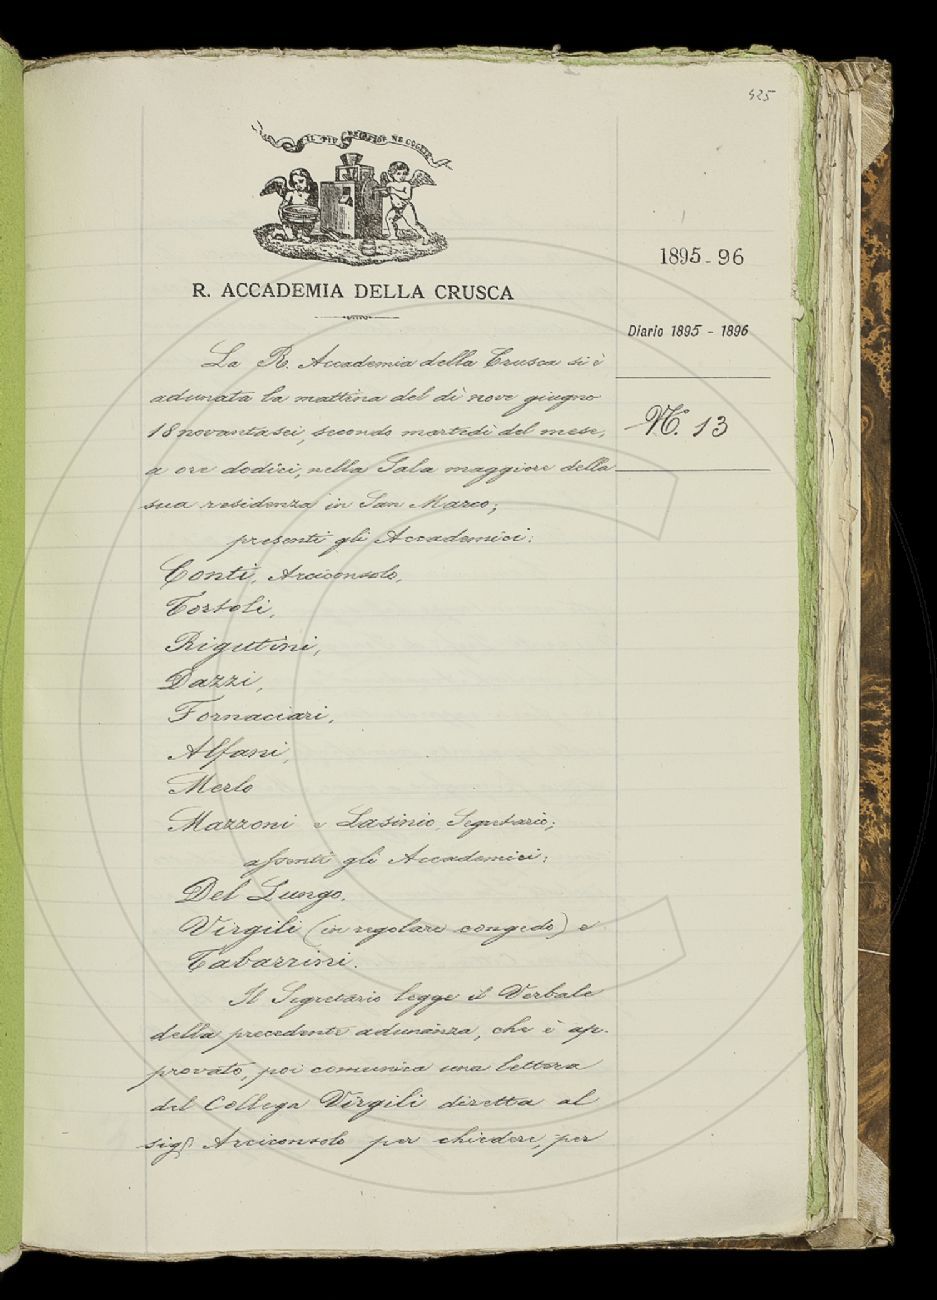 425
IL PIÙ BEL FIOR NE COGLIE
1895-96
R. ACCADEMIA DELLA CRUSCA
Diario 1895 - 1896
N. 13
La R. Accademia della Crusca si è
adunata la mattina del dì nove giugno
18novantasei, secondo martedì del mese,
a ore dodici, nella Sala maggiore della
sua residenza in San Marco;
presenti gli Accademici:
Conti, Arciconsolo,
Tortoli,
Rigutini,
Dazzi,
Fornaciari,
Alfani,
Merlo
Mazzoni e Lasinio, Segretario;
assenti gli Accademici:
Del Lungo,
Virgili (in regolare congedo) e
Tabarrini.
Il Segretario legge il Verbale
della precedente adunanza, che è ap-
provato, poi comunica una lettera
del Collega Virgili diretta al
sig.r Arciconsolo per chiedere, per